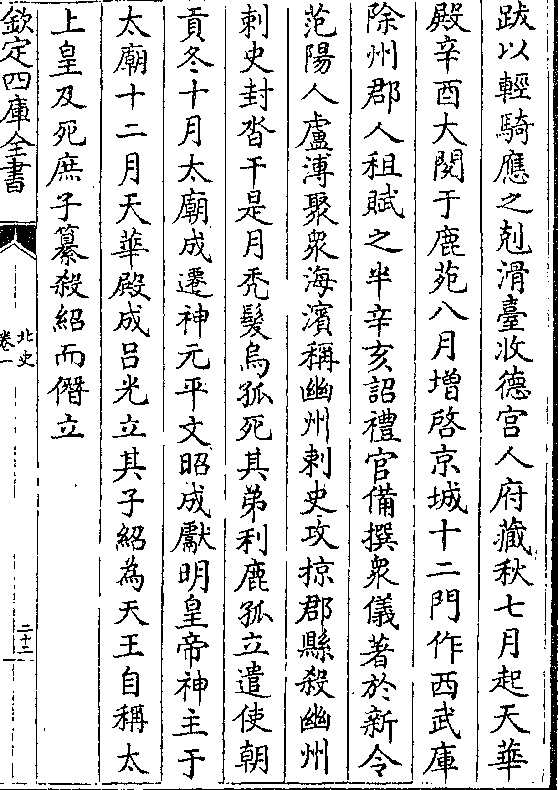 跋以輕騎應之剋滑臺收德宫人府藏秋七月起天華
殿辛酉大閱于鹿苑八月增啓京城十二門作西武庫
除州郡人租賦之半辛亥詔禮官備撰衆儀著於新令
范陽人盧溥聚衆海濱稱幽州刺史攻掠郡縣殺幽州
刺史封沓干是月禿髮烏孤死其弟利鹿孤立遣使朝
貢冬十月太廟成遷神元平文昭成獻明皇帝神主于
太廟十二月天華殿成吕光立其子紹為天王自稱太
上皇及死庶子纂殺紹而僭立
欽定四庫全書
北史
卷一
二十二